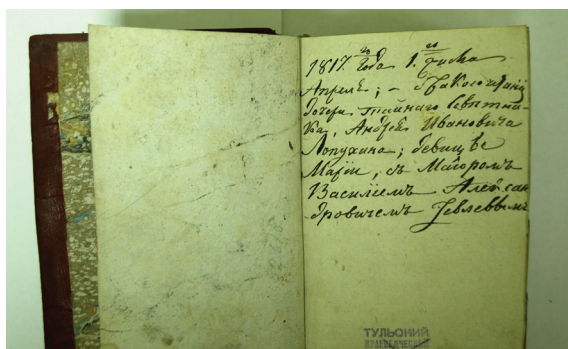 1817.го Года 1.го Числа
Апреля; – бракосочетание
дочери тайнаго Советни-
ка, Андрея Ивановича
Лопухина; девицы
Марьи, съ Маиоромъ
Василиемъ Алексан
дровичемъ
ТУЛЬСКИЙ
КРАЕВЕДЧЕСКИЙ